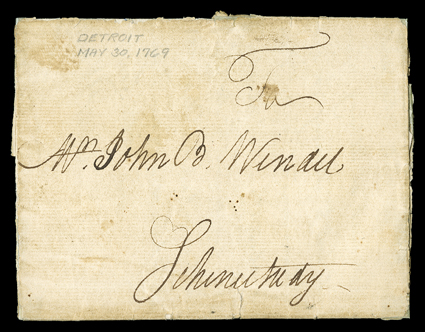 DETROIT
MAY 30, 1769
To
Mr. John B. Wendel
Schenectady